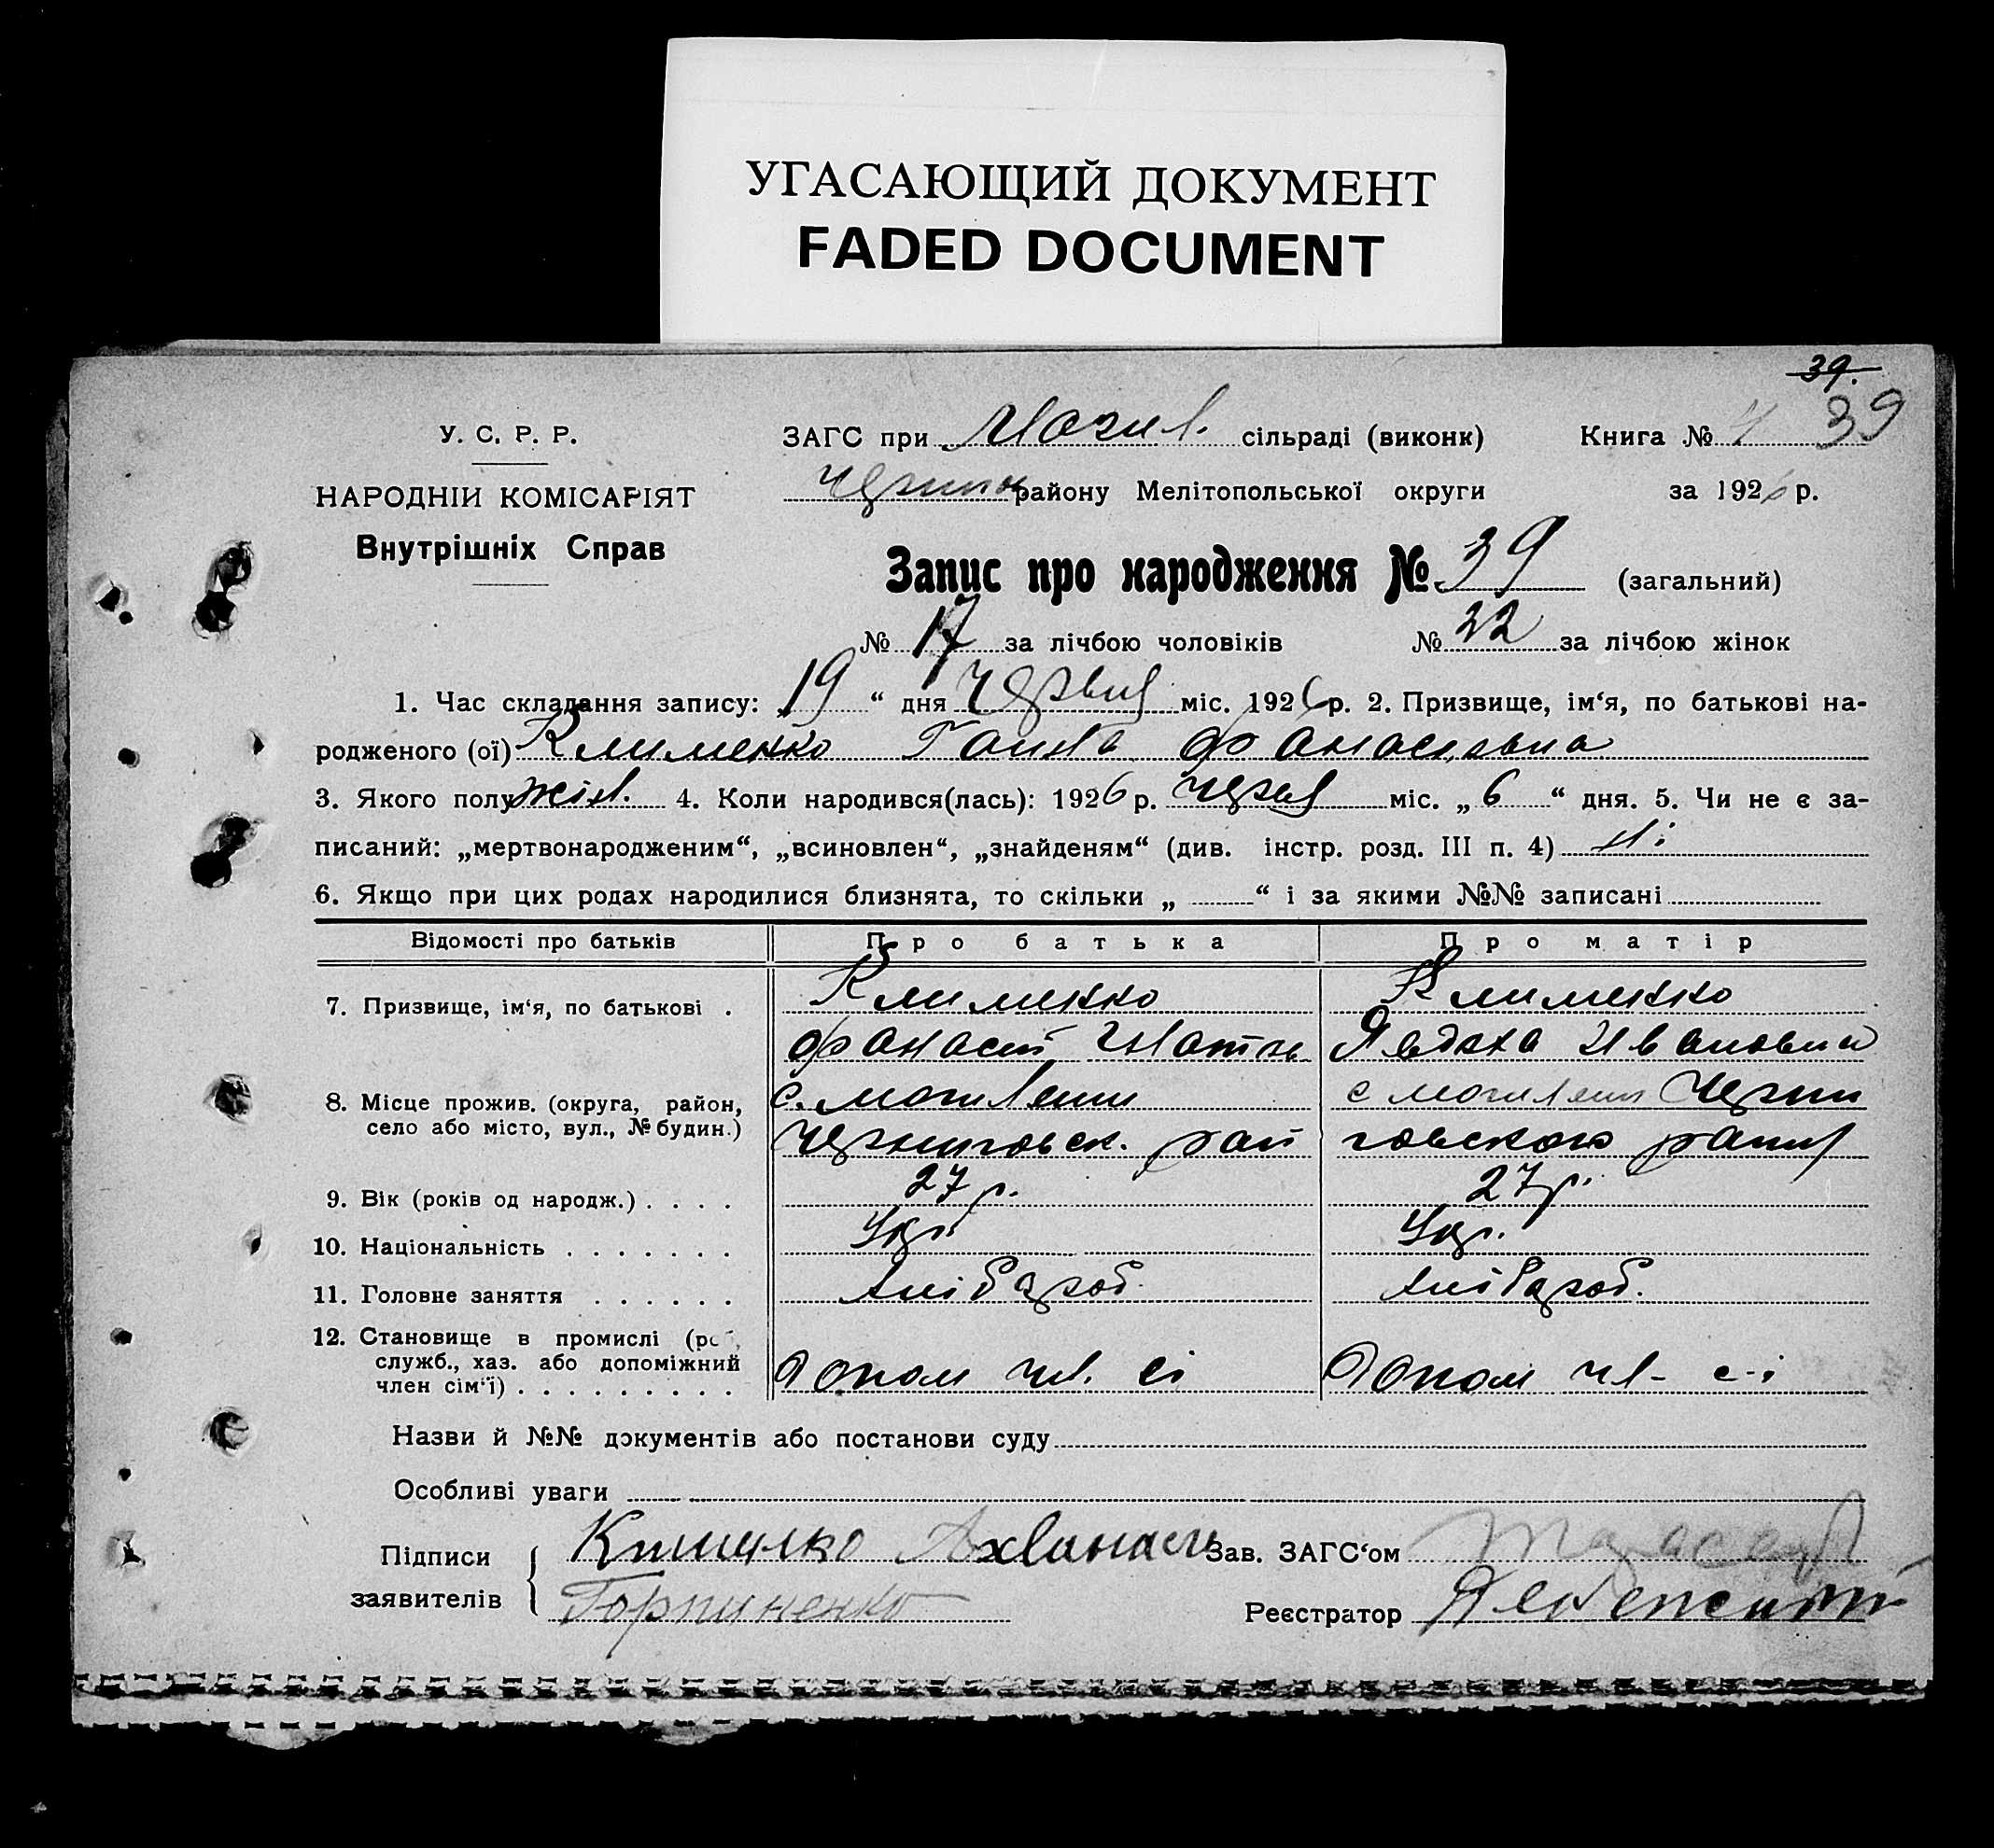 УГАСАЮЩИЙ ДОКУМЕНТ
FADED DOCUMENT
39.
У. С. Р. Р.
ЗАГС при Могил. сільраді (виконк) Книга № 39
НАРОДНІЙ КОМІСАРІЯТ
Черниг району Мелітопольської округи за 1926 р.
Внутрішніх Справ
Запис про народження № 39 (загальний)
№ 17 за лічбою чоловіків № 22 за лічбою жінок
1. Час складання запису: 19 “ дня Червня міс. 1926 р. 2. Призвище, ім‘я, по батькові на-
родженого (ої) Клименко Ганна Фанасивна
3. Якого полу жін. 4. Коли народився(лась): 1926 р. Черв міс. „ 6 “ дня. 5. Чи не є за-
писаний: „мертвонародженим“, „всиновлен“, „знайденям“ (див. інстр. розд. III п. 4) ні
6. Якщо при цих родах народилися близнята, то скільки „ “ і за якими №№ записані
Відомості про батьків Про батька Про матір
7. Призвище, ім‘я, по батькові . Клименко Клименко
Фанасий Гнатов Явдоха Ивановна
8. Місце прожив. (округа, район, с. Могилени с Могилени Черни
село або місто, вул., № будин.) Черниговск. рай говского раину
9. Вік (років од народж.) . . . . 27 р. 27 р.
10. Національність . . . . . . . Укр. Укр.
11. Головне заняття . . . . . . Хлібароб. Хлібароб.
12. Становище в промислі (роб.,
служб., хаз. або допоміжний
член сім‘ї) . . . . . . . . . Допом чл. сі Допом чл- с-і
Назви й №№ документів або постанови суду
Особливі уваги
Підписи Ахванась Зав. ЗАГС‘ом
заявителів Горпиненко Реєстратор